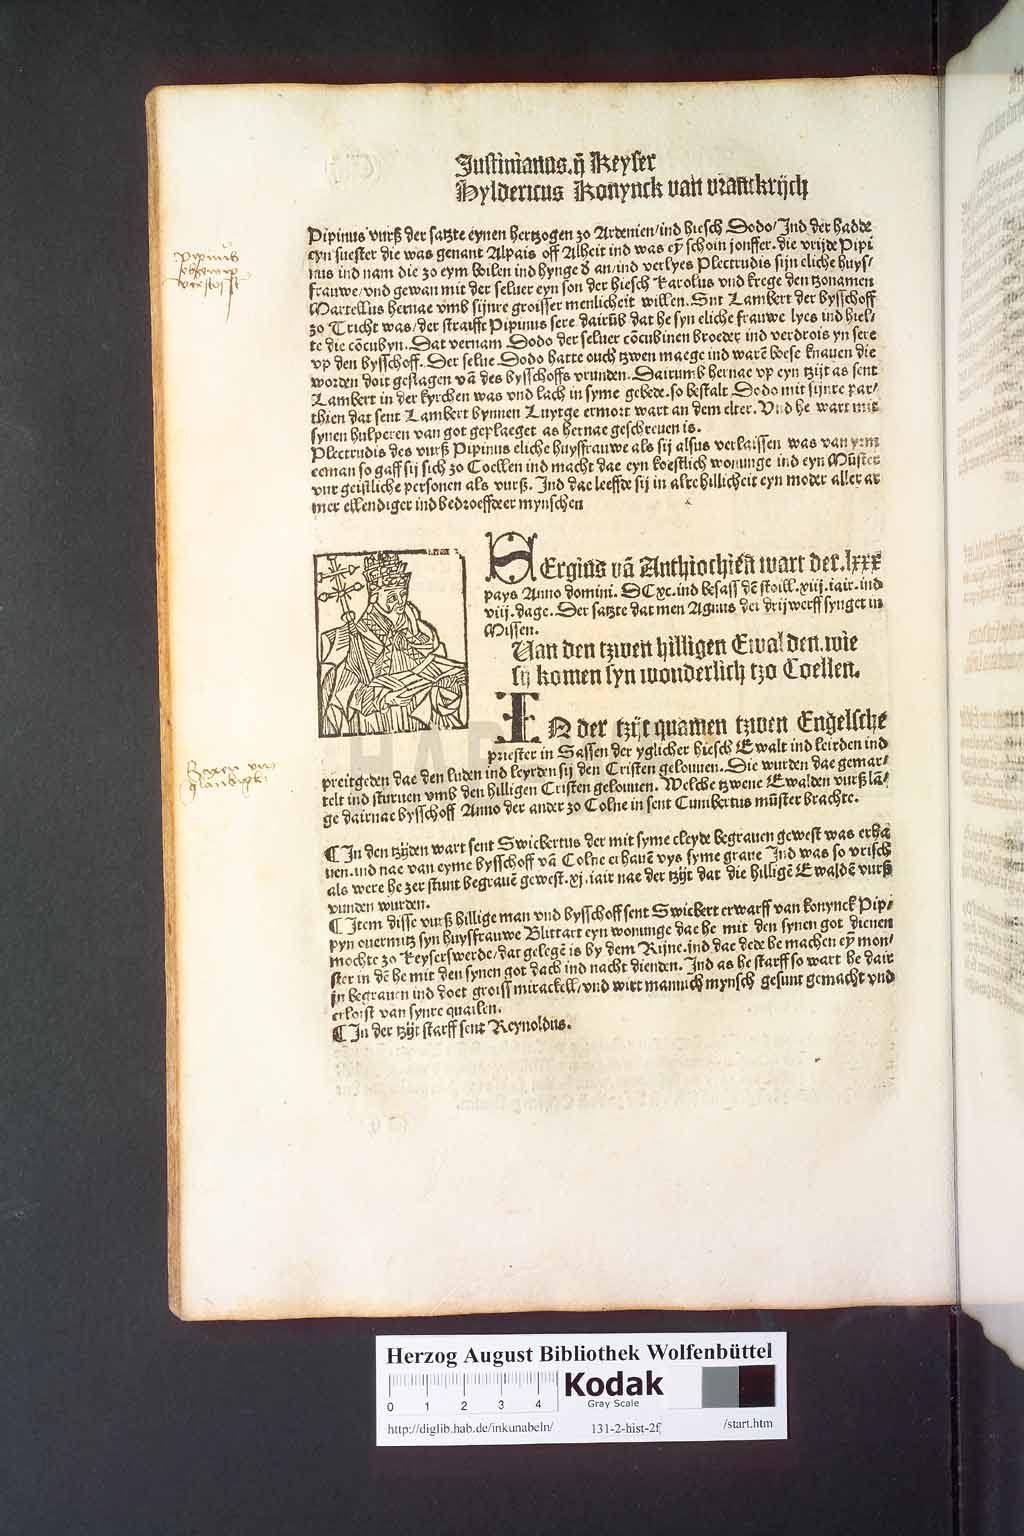 Justinianus.ij Keyser
Hyldericus Konynck van vranckrijch
Pipinus vurß der satzte eynen hertzogen zo Ardenien/ind hiesch Dodo/Jnd der hadde
eyn suester die was genant Alpais off Alheit ind was eȳ schoin jonffer.die vrijde Pipi
nus ind nam die zo eym boilen ind hynge d̄ an/ind verlyes Plectrudis sijn eliche huys/
frauwe/vnd gewan mit der seluer eyn son der hiesch Karolus vnd krege den tzonamen
Martellus hernae vmb sijnre groisser menlicheit willen.Snt Lambert der bysschoff
zo Tricht was/der straifft Pipinus sere dairūb dat he syn eliche frauwe lyes ind hiel/
te die cōcubyn.Dat vernam Dodo der seluer cōcubinen broeder ind verdrois yn sere
vp den bysschoff.Der selue Dodo hatte ouch tzwen maege ind warē boese knauen die
worden doit geslagen vā des bysschoffs vrunden.Dairumb hernae vp eyn tzijt as sent
Lambert in der kyrchen was vnd lach in syme gebede.so bestalt Dodo mit sijnre par/
thien dat sent Lambert bynnen Luytge ermort wart an dem elter.Vnd he wart mit
synen hulperen van got geplaeget as hernae geschreuen is.
Plectrudis des vurß Pipinus eliche huysfrauwe als sij alsus verlaissen was van yrm
eeman so gaff sij sich zo Coellen ind macht dae eyn koestlich wonunge ind eyn Mūster
vur geistliche personen als vurß.Jnd dae leeffde sij in alre hillicheit eyn moder aller ar
mer ellendiger ind bedroeffdeer mynschen
SErgius vā Anthiochien wart der.lxxx
pays Anno domini.DCxc.ind besass dē stoill.xiij.iair.ind
viij.dage.Der satzte dat men Agnus dei drijwerff synget in
Missen.
Van den tzwen hilligen Ewalden.wie
sij komen syn wonderlich tzo Coellen.
IN der tzijt quamen tzwen Engelsche
priester in Sassen der yglicher hiesch Ewalt ind leirden ind
preitgeden dae den luden ind leyrden sij den Cristen gelouuen.Die wurden dae gemar/
telt ind sturuen vmb den hilligen Cristen gelouuen.Welche tzwene Ewalden vurß lā/
ge dairnae bysschoff Anno der ander zo Colne in sent Cumbertus mūster brachte.
¶ Jn den tzijden wart sent Swickertus der mit syme cleyde begrauen gewest was erha
uen.ind nae van eyme bysschoff vā Colne erhauē vys syme graue Jnd was so vrisch
als were he zer stunt begrauē gewest.xj.iair nae der tzijt dat die hilligē Ewaldē vurß
vunden wurden.
¶ Jtem disse vurß hillige man vnd bysschoff sent Swickert erwarff van konynck Pip/
pyn ouermitz syn huysfrauwe Blittart eyn wonunge dae he mit den synen got dienen
mochte zo Keyserswerde/dat gelegē is by dem Rijne.ind dae dede he machen eȳ mon/
ster in dē he mit den synen got dach ind nacht dienden.Jnd as he starff so wart he dair
jn begrauen ind doet groiss mirackell/vnd wirt mannich mynsch gesunt gemacht vnd
erloist van synre quailen.
¶ Jn der tzijt starff sent Reynoldus.
Herzog August Bibliothek Wolfenbüttel
0 1 2 3 4
Kodak
Gray Scale
http://diglib.hab.de/inkunabeln/ 131-2-hist-2f /start.htm